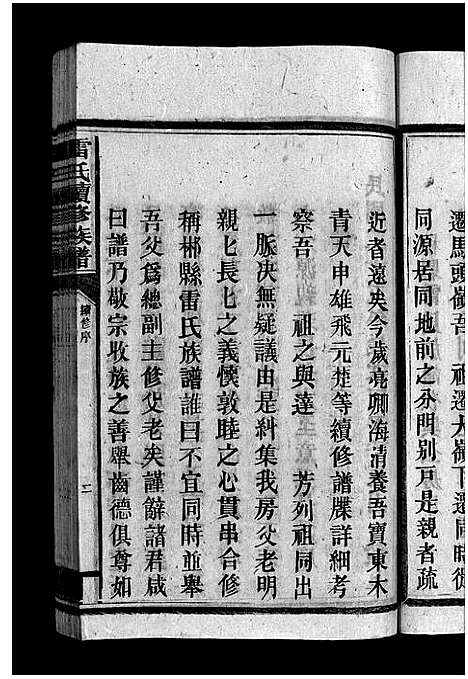 遷馬頭嶺吾 祖遷大嶺下遷同時從
同源居同地前之分門別戸是親者疏
近者遠矣今歲亮卿海清養吾寶東木
青天申雄飛元楚等續修譜牒詳細考
察吾 祖之與蓬 芳列祖同出
一脈决無疑議由是糾集我房父老明
親匕長匕之義慔敦睦之心貫串合修
稱郴縣雷氏族譜誰曰不宜同時並舉
吾父爲總副主修父老矣謹辭諸君咸
曰譜乃敬宗收族之善舉齒德俱尊如
雷氏續修族譜
續修序
二